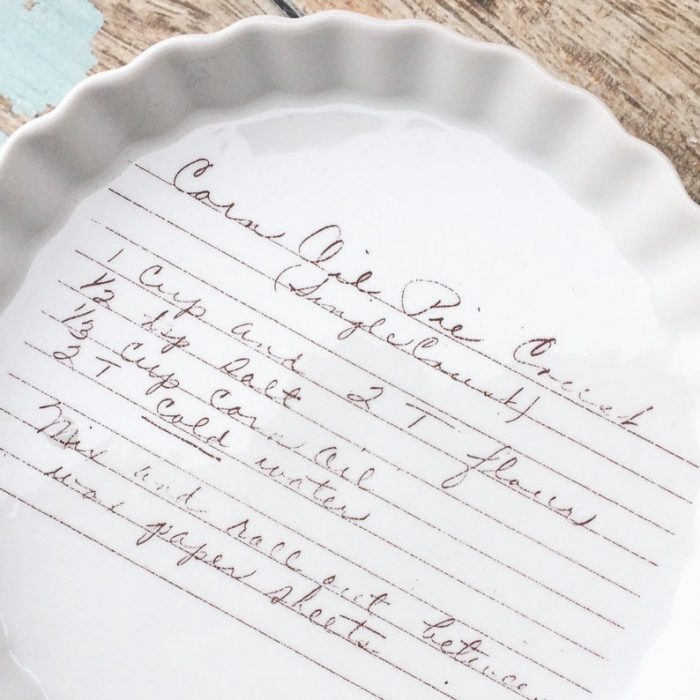 Corn Oil Pie Crust
(Single Crust)
1 cup and 2 T flour
1/2 tsp salt
1/3 cup corn oil
2 T cold water
Mix and roll out between
wax paper sheets.